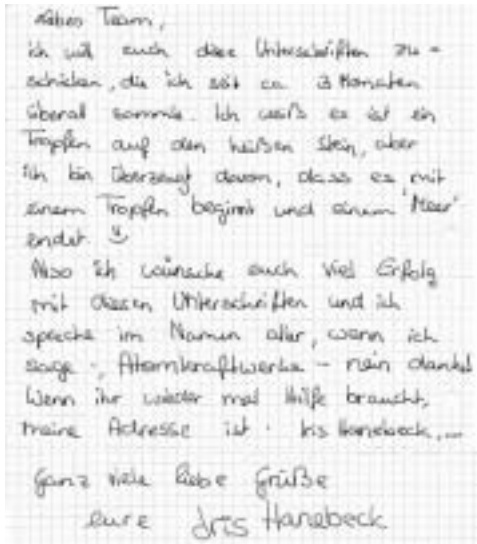 Liebes Team,
ich will euch diese Unterschriften zu-
schicken, die ich seit ca. 3 Monaten
überall sammle. Ich weiß es ist ein
Tropfen auf den heißen Stein, aber
ich bin überzeugt davon, dass es mit
einem Tropfen beginnt und einem 'Meer'
endet.
Also ich wünsche euch viel Erfolg
mit diesen Unterschriften und ich
spreche im Namen aller, wenn ich
sage -, Atomkraftwerke - nein danke!
Wenn ihr wieder mal Hilfe braucht,
meine Adresse ist: Iris Hanebeck,...
Ganz viele liebe Grüße
eure Iris Hanebeck